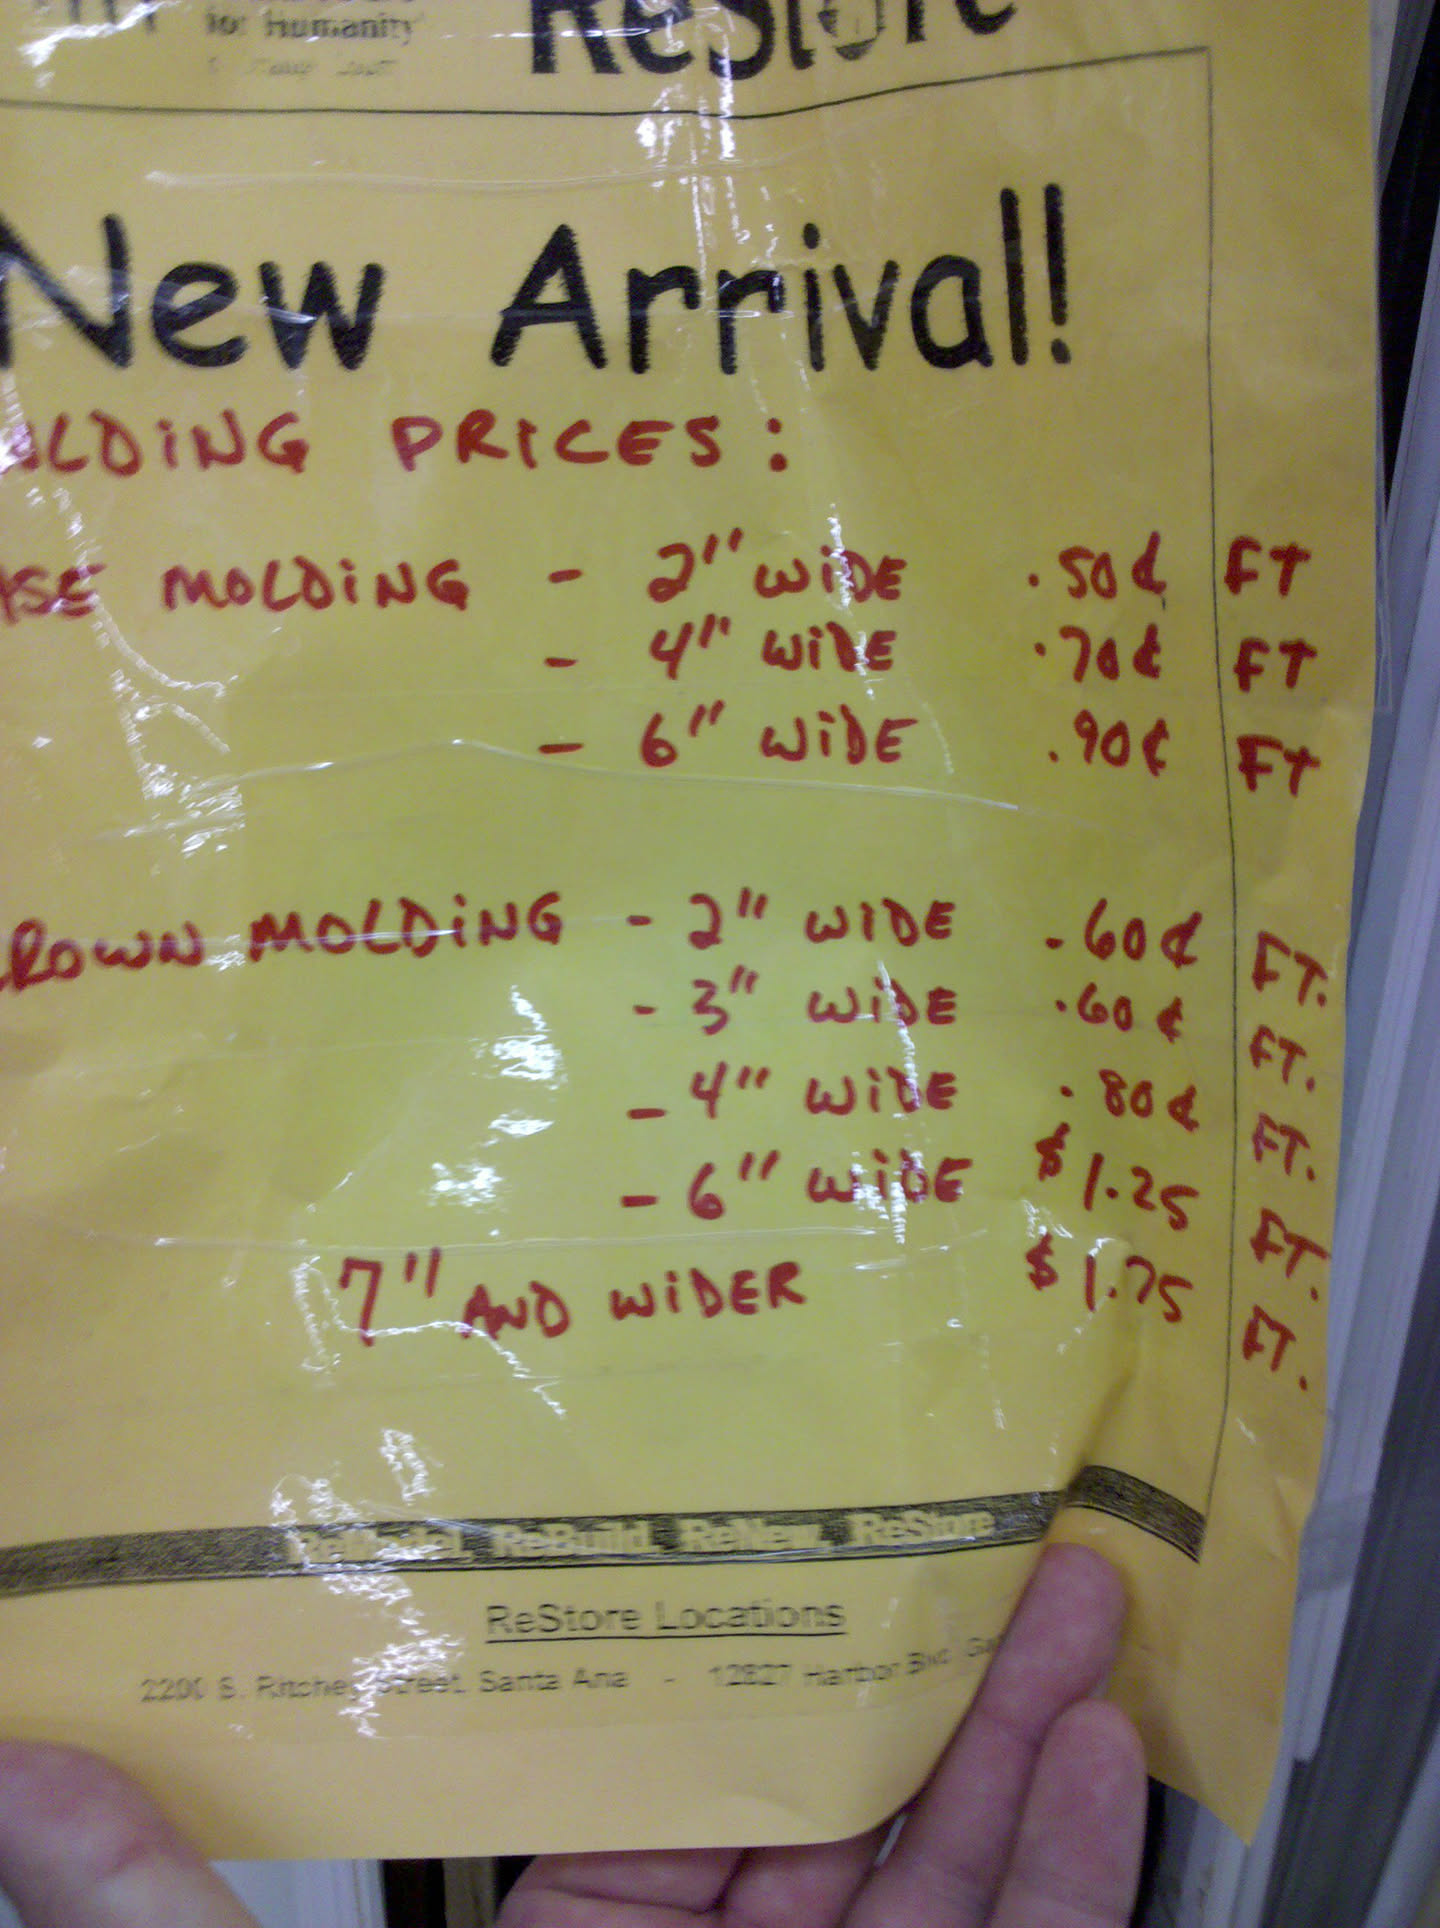 for Humanity
ReStore
New Arrival!
LDiNG PRICES:
ASE MOLDiNG - 2" WiDE .50¢ FT
- 4" WiDE .70¢ FT
- 6" WiDE .90¢ FT
CROWN MOLDiNG - 2" WiDE .60¢ FT.
- 3" WiDE .60¢ FT.
- 4" WiDE .80¢ FT.
- 6" WiDE $1.25 FT.
7" AND WiDER $1.75 FT.
ReModel, ReBuild, ReNew, ReStore
ReStore Locations
2200 S. Ritchey Street, Santa Ana - 12827 Harbor Blvd